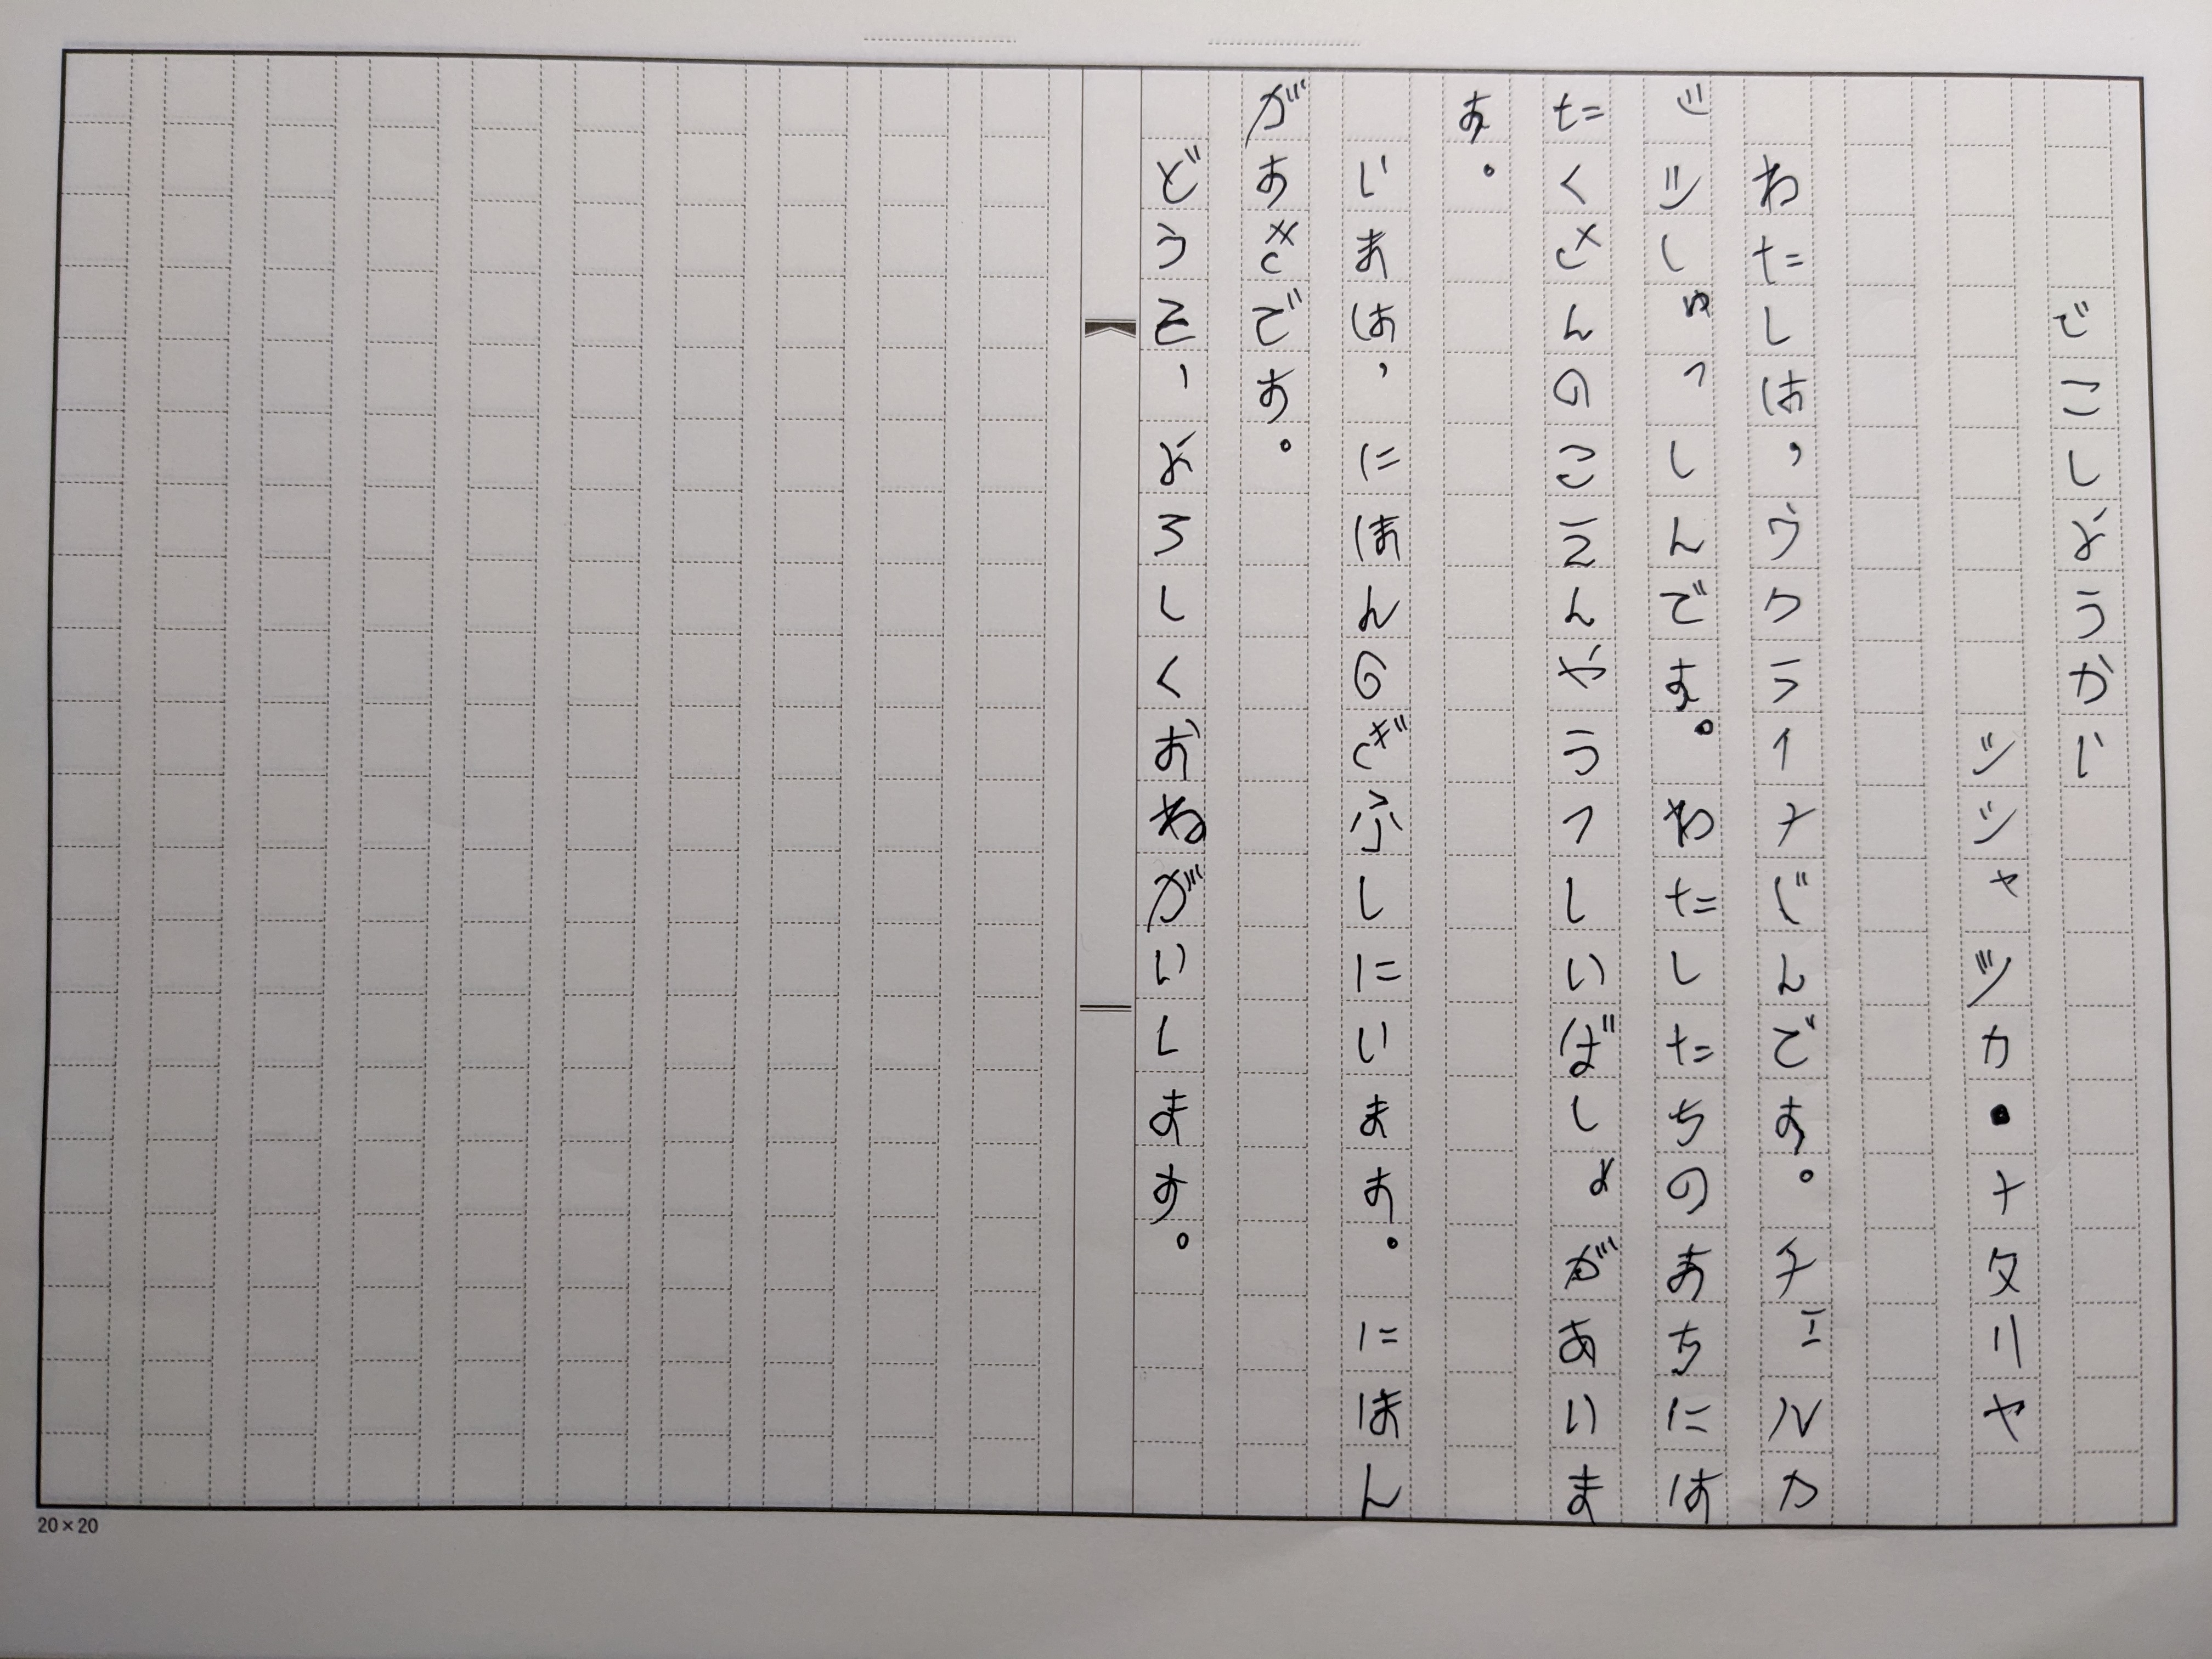 じこしようかい
シシャツカ・ナタリヤ
わたしは，ウクライナじんです。チェルカ
シシしゅっしんです。わたしたちのまちには
たくさんのこえんやうつしいばしょがあいま
す。
いまは，にほんのぎふしにいます。にほん
がすきです。
どうぞ，よろしくおねがいします。
20×20